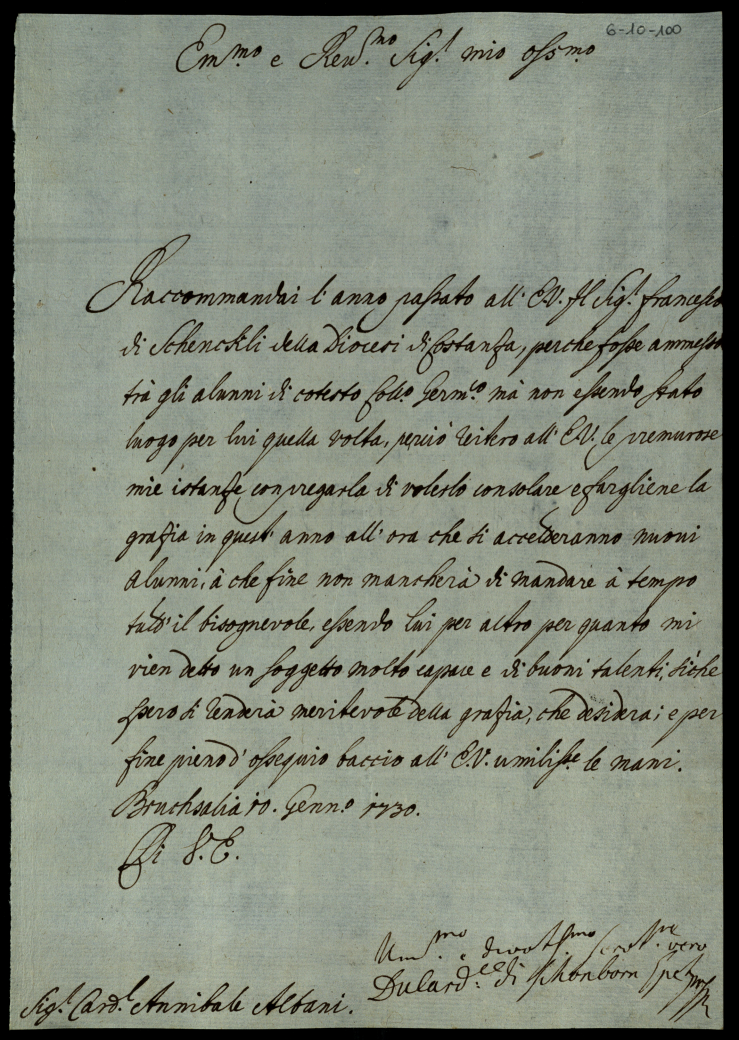 6-10-100
Em.mo e Reu.mo Sig.r mio oss.mo
Raccommandai l'anno passato all'E.V. Il Sig.r Francesco
di Schenckli della Diocesi di Costanza, perche fosse ammesso
trà gli alunni di cotesto Coll.o Germ.co mà non essendo stato
luogo per lui quella volta, perciò reitero all'E.V. le premurose
mie istanze con pregarla di volerlo consolare e fargliene la
grazia in quest'anno all'ora che si accetteranno nuovi
alunni, à che fine non mancherà di mandare à tempo
tutt'il bisognevole, essendo lui per altro per quanto mi
vien detto un soggetto molto capace e di buoni talenti, siche
spero si renderà meritevole della grazia, che desidera; e per
fine pieno d'ossequio baccio all'E.V. umiliss.e le mani.
Bruchsalia 10. Genn.o 1730.
Di V.E.
Um.mo e divot.mo vero
di Schönborn
Sig.r Card.l Annibale Albani.